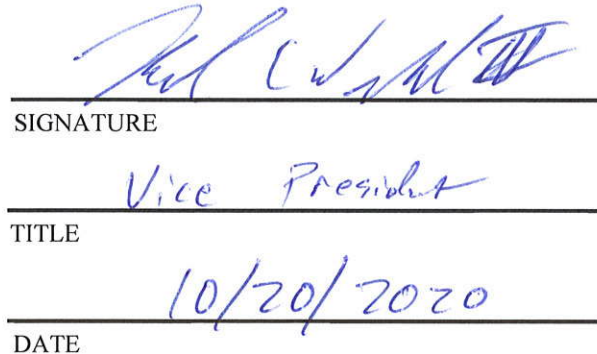 SIGNATURE
Vice President
TITLE
10/20/2020
DATE